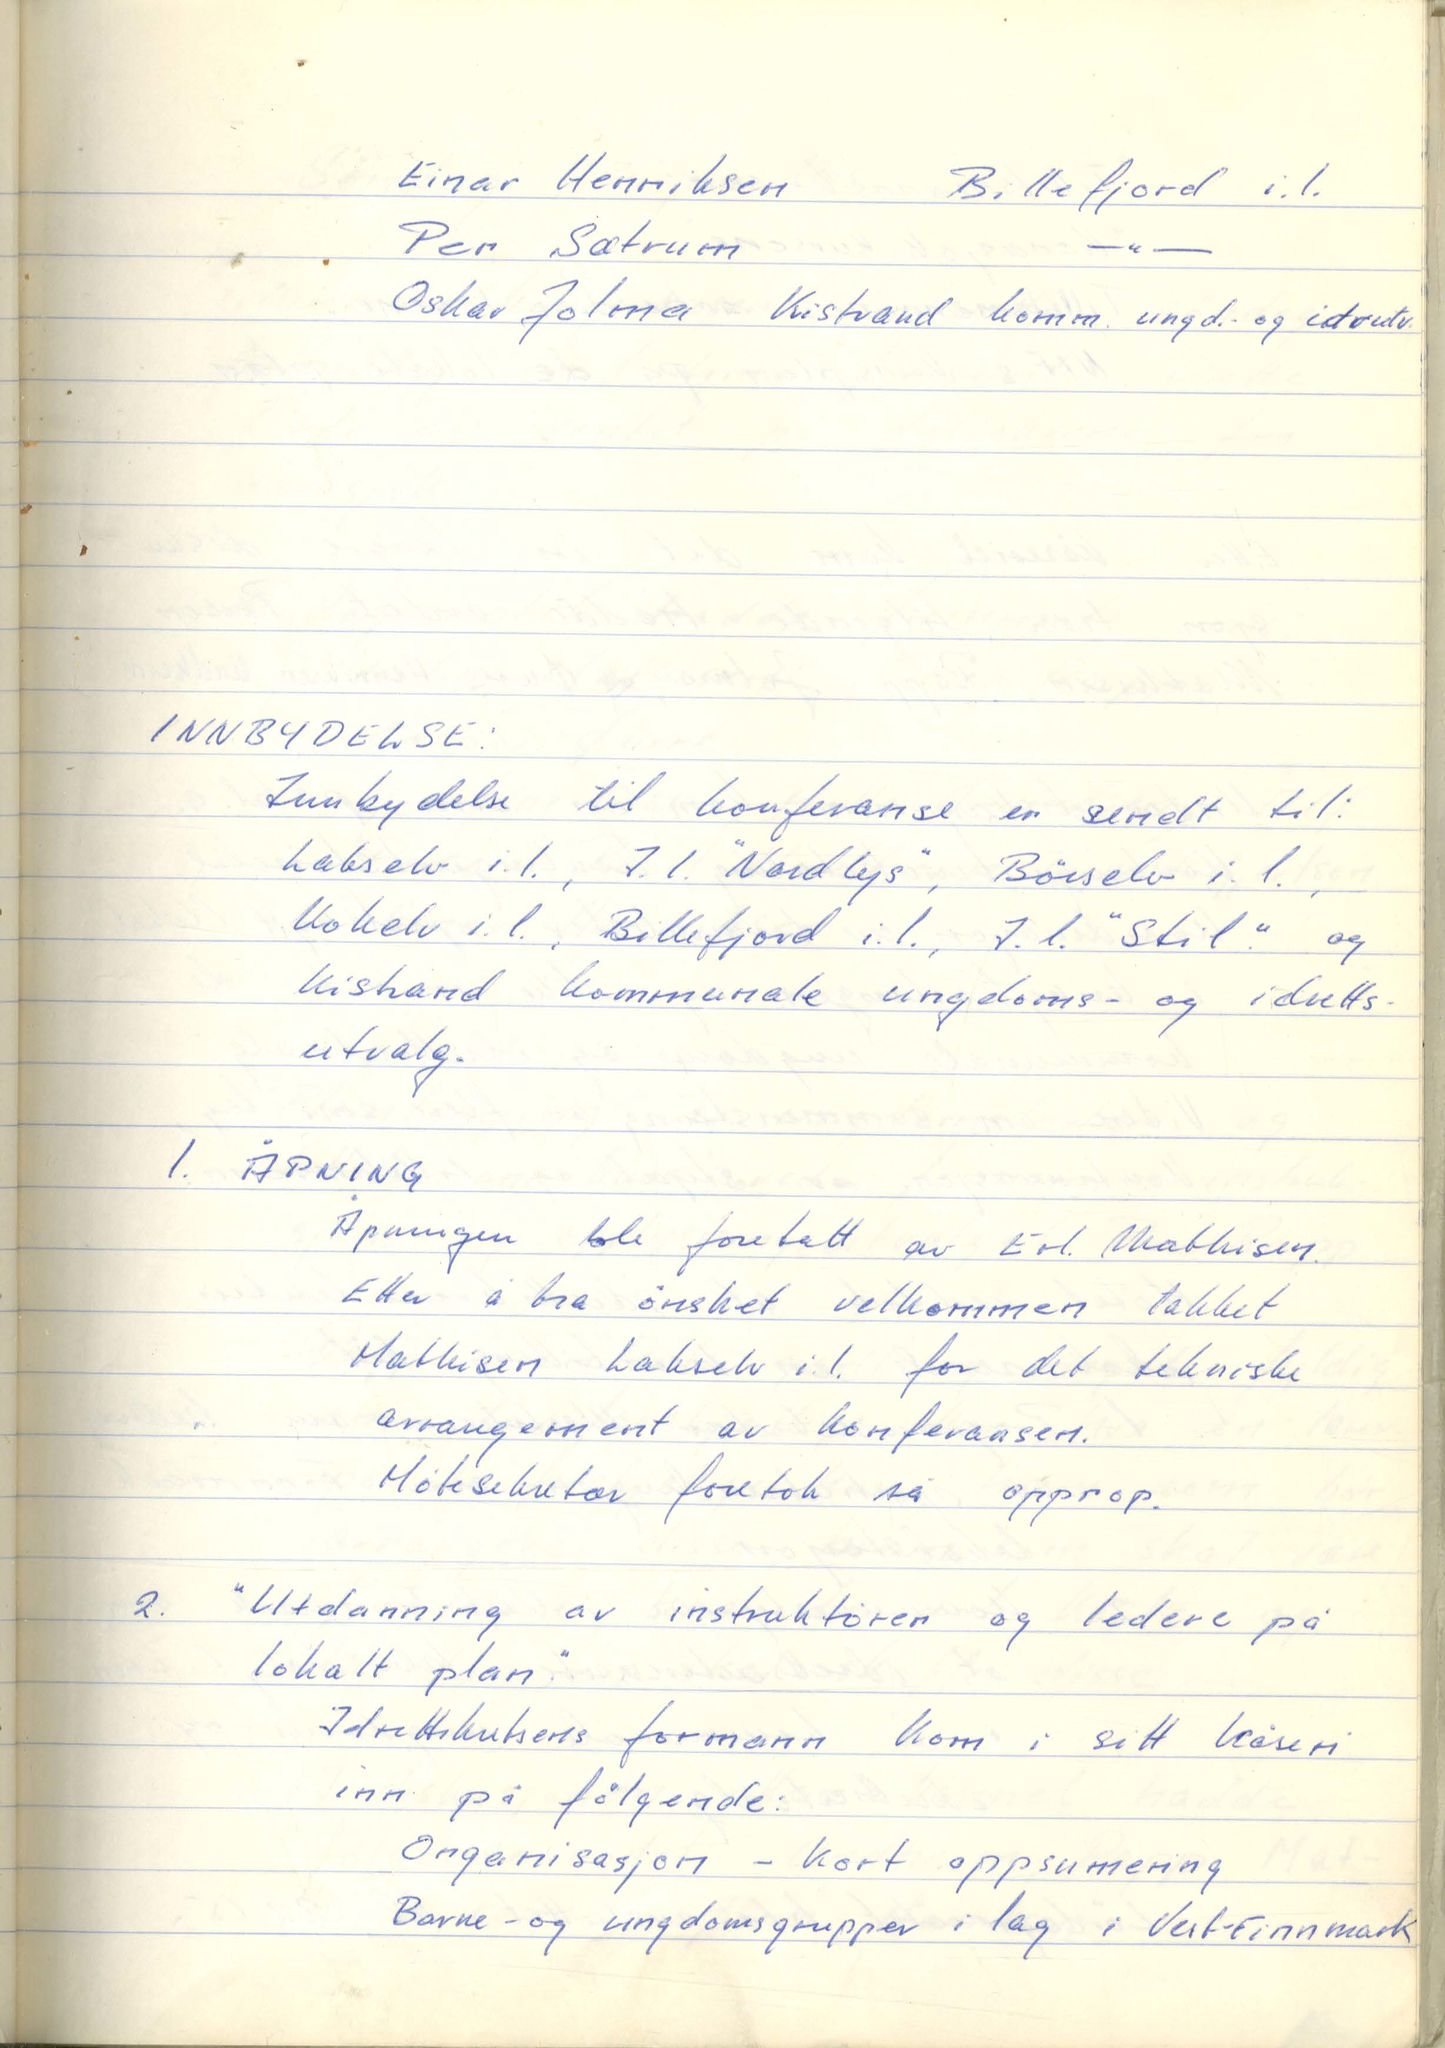 Einar Henriksen Billefjord i.l.
Per Sætrum —"—
Oskar Jolma Kistrand komm. ungd.- og idrutv.
INNBYDELSE:
Innbydelse til konferanse er sendt til:
Lakselv i.l., I.l. "Nordlys", Börselv i.l.,
Kokelv i.l., Billefjord i.l., I.l. "Stil." og
Kistrand kommunale ungdoms- og idretts-
utvalg.
1. ÅPNING
Åpningen ble foretatt av Erl. Mathisen.
Etter å ha önsket velkommen takket
Mathisen Lakselv i.l. for det tekniske
arrangement av konferansen.
Mötesekretær foretok så opprop.
2. "Utdanning av instruktörer og ledere på
lokalt plan."
Idrettskretsens formann kom i sitt kåseri
inn på fölgende:
Organisasjon - kort oppsumering
Barne- og ungdomsgrupper i lag i Vest-Finnmark